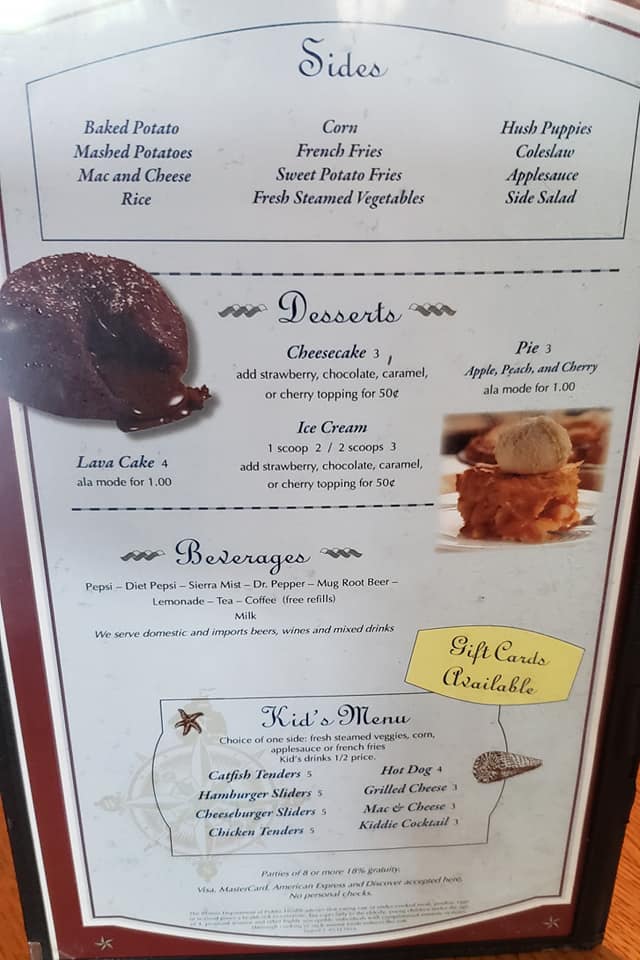 Sides
Baked Potato
Mashed Potatoes
Mac and Cheese
Rice
Corn
French Fries
Sweet Potato Fries
Fresh Steamed Vegetables
Hush Puppies
Coleslaw
Applesauce
Side Salad
Desserts
Cheesecake 3
add strawberry, chocolate, caramel,
or cherry topping for 50¢
Pie 3
Apple, Peach, and Cherry
ala mode for 1.00
Ice Cream
1 scoop 2 / 2 scoops 3
add strawberry, chocolate, caramel,
or cherry topping for 50¢
Lava Cake 4
ala mode for 1.00
Beverages
Pepsi – Diet Pepsi – Sierra Mist – Dr. Pepper – Mug Root Beer –
Lemonade – Tea – Coffee (free refills)
Milk
We serve domestic and imports beers, wines and mixed drinks
Gift Cards
Available
Kid's Menu
Choice of one side: fresh steamed veggies, corn,
applesauce or french fries
Kid's drinks 1/2 price.
Catfish Tenders 5
Hamburger Sliders 5
Cheeseburger Sliders 5
Chicken Tenders 5
Hot Dog 4
Grilled Cheese 3
Mac & Cheese 3
Kiddie Cocktail 3
Parties of 8 or more 18% gratuity.
Visa, MasterCard, American Express and Discover accepted here.
No personal checks.